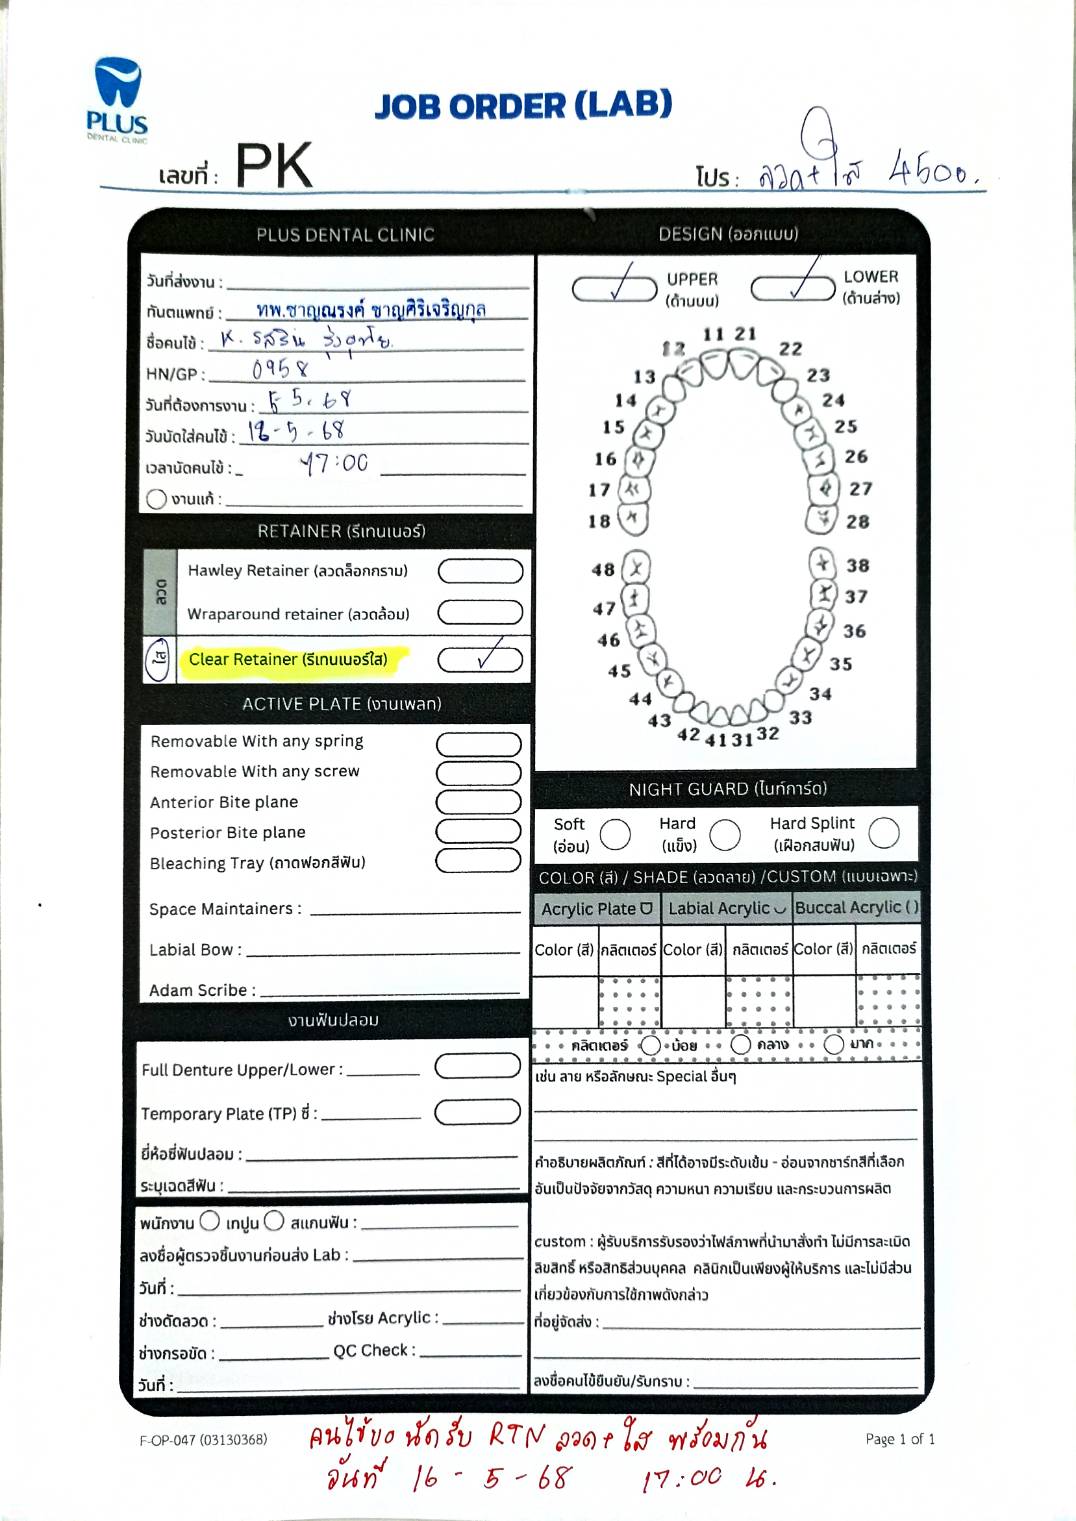 PLUS
DENTAL CLINIC
JOB ORDER (LAB)
เลขที่ : PK
โปร : ลวด+ใส 4500.
PLUS DENTAL CLINIC
วันที่ส่งงาน :
ทันตแพทย์ : ทพ.ชาญณรงค์ ชาญศิริเจริญกุล
ชื่อคนไข้ : K. รสริน
HN/GP : 0958
วันที่ต้องการงาน : 5.68
วันนัดใส่คนไข้ : 16-5-68
เวลานัดคนไข้ : 17:00
งานแก้ :
RETAINER (รีเทนเนอร์)
ลวด
Hawley Retainer (ลวดล็อกกราม)
Wraparound retainer (ลวดล้อม)
ใส
Clear Retainer (รีเทนเนอร์ใส)
ACTIVE PLATE (งานเพลท)
Removable With any spring
Removable With any screw
Anterior Bite plane
Posterior Bite plane
Bleaching Tray (ถาดฟอกสีฟัน)
Space Maintainers :
Labial Bow :
Adam Scribe :
งานฟันปลอม
Full Denture Upper/Lower :
Temporary Plate (TP) ซี่ :
ยี่ห้อซี่ฟันปลอม :
ระบุเฉดสีฟัน :
พนักงาน เทปูน สแกนฟัน :
ลงชื่อผู้ตรวจชิ้นงานก่อนส่ง Lab :
วันที่ :
ช่างดัดลวด : ช่างโรย Acrylic :
ช่างกรอขัด : QC Check :
วันที่ :
DESIGN (ออกแบบ)
UPPER
(ด้านบน)
LOWER
(ด้านล่าง)
11 21
12 22
13 23
14 24
15 25
16 26
17 27
18 28
48 38
47 37
46 36
45 35
44 34
43 33
42 41 31 32
NIGHT GUARD (ไนท์การ์ด)
Soft
(อ่อน)
Hard
(แข็ง)
Hard Splint
(เฝือกสบฟัน)
COLOR (สี) / SHADE (ลวดลาย) /CUSTOM (แบบเฉพาะ)
Acrylic Plate Labial Acrylic Buccal Acrylic ( )
Color (สี) กลิตเตอร์ Color (สี) กลิตเตอร์ Color (สี) กลิตเตอร์
กลิตเตอร์ น้อย กลาง มาก
เช่น ลาย หรือลักษณะ Special อื่นๆ
คำอธิบายผลิตภัณฑ์ : สีที่ได้อาจมีระดับเข้ม - อ่อนจากชาร์ทสีที่เลือก
อันเป็นปัจจัยจากวัสดุ ความหนา ความเรียบ และกระบวนการผลิต
custom : ผู้รับบริการรับรองว่าไฟล์ภาพที่นำมาสั่งทำ ไม่มีการละเมิด
ลิขสิทธิ์ หรือสิทธิส่วนบุคคล คลินิกเป็นเพียงผู้ให้บริการ และไม่มีส่วน
เกี่ยวข้องกับการใช้ภาพดังกล่าว
ที่อยู่จัดส่ง :
ลงชื่อคนไข้ยืนยัน/รับทราบ :
F-OP-047 (03130368)
Page 1 of 1
คนไข้ขอนัดรับ RTN ลวด+ใส พร้อมกัน
วันที่ 16 - 5 - 68 17:00 น.